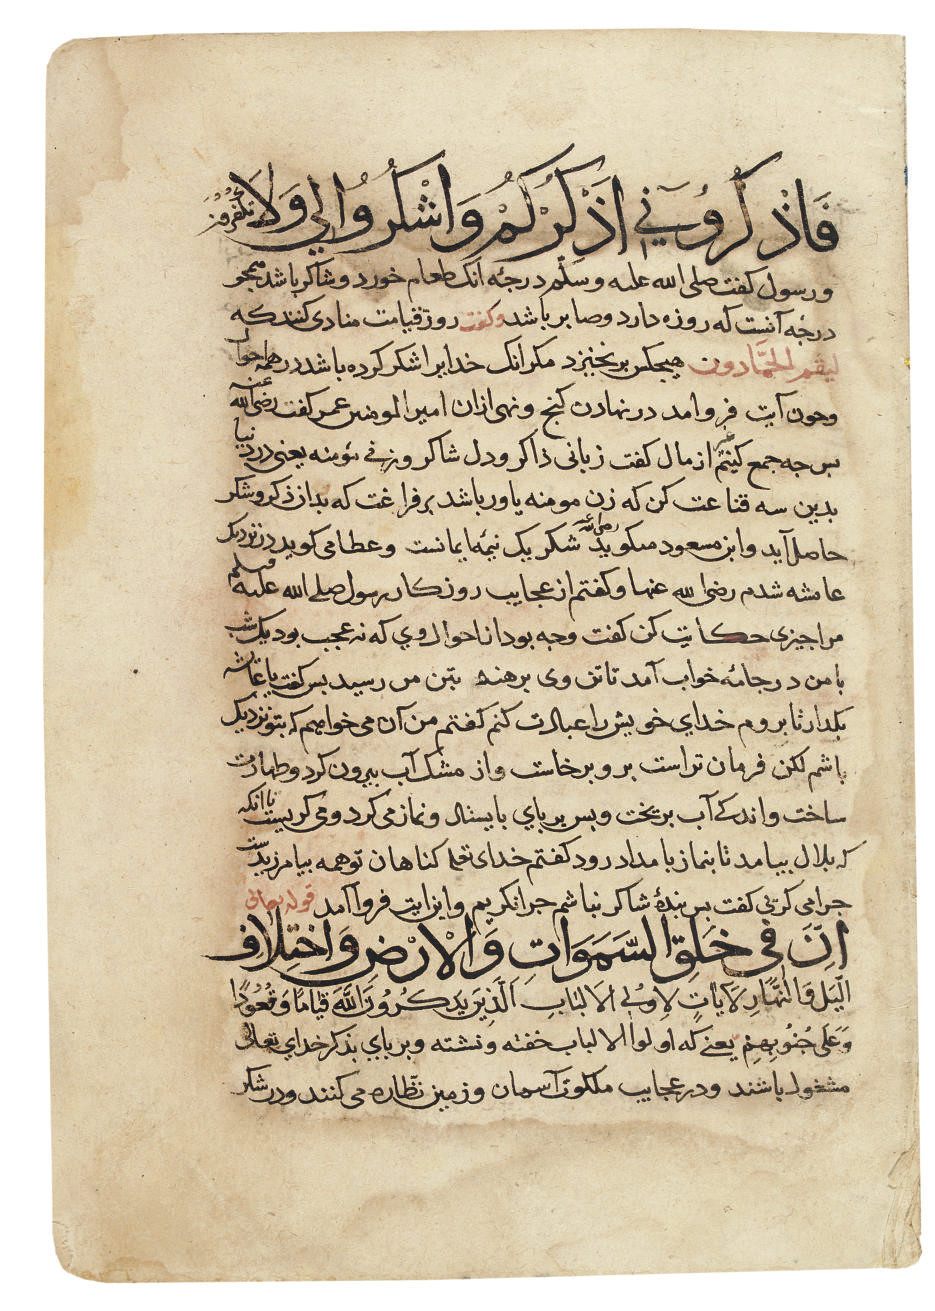 فَاذْكُرُونِي اَذْكُرْكُمْ وَاشْكُرُوالِي وَلَا تَكْفُرُونِ
ورسول کفت صلی الله علیه وسلم درجهٔ آنک طعام خورد و شاکر باشد همچو
درجه آنست که روزه دارد و صابر باشد وکفت روز قیامت منادی کنند که
لیقم الحمَّادون هیچکس برنخیزد مکر آنک خدایرا شکر کرده باشد در همه احوال
وچون آیت فروآمد در نهادن کنج ونهی ازان امیر المومنین عمر کفت رضی الله عنه
بس چه جمع کنیم از مال کفت زبانی ذاکر ودل شاکر وزنی مؤمنه یعنی در دنیا
بدین سه قناعت کن که زن مومنه یاور باشد بر فراغت که بدان ذکر وشکر
حاصل آید وابن مسعود میکوید رضی الله عنه شکر یک نیمهٔ ایمانست وعطا می کوید در نزدیک
عایشه شدم رضی الله عنها وکفتم از عجایب روزکار رسول صلی الله علیه وسلم
مرا چیزی حکایت کن کفت وچه بود از احوال وی که نه عجب بود یک شب
با من در جامهٔ خواب آمد تا تن وی برهنه بتن من رسید بس کفت یا عائشه
بکذار تا بروم خدای خویش را عبادت کنم کفتم من آن می خواهم که بتو نزدیک
باشم لکن فرمان تراست برو برخاست واز مشک آب بیرون کرد وطهارت
ساخت واندکی آب بریخت وبس بر پای بایستاد ونماز می کرد ومی کریست تا آنکه
که بلال بیامد تا بنماز بامداد رود کفتم خدای تعالی کناهان تو همه بیامرزیدست
چرا می کریی کفت بس بندهٔ شاکر نباشم چرا نکریم واین آیت فرو آمد قوله تعالی
اِنَّ فِي خَلْقِ السَّمَوَاتِ وَالْاَرْضِ وَاخْتِلَافِ
الَّيْلِ وَالنَّهَارِ لَاٰيَاتٍ لِاُولِي الْاَلْبَابِ الَّذِينَ يَذْكُرُونَ اللَّهَ قِيَامًا وَقُعُودًا
وَعَلَى جُنُوبِهِمْ یعنی که اولوا الالباب خفته ونشسته وبر پای بذکر خدای تعالی
مشغول باشند ودر عجایب ملکوت آسمان وزمین نظاره می کنند ودر شکر